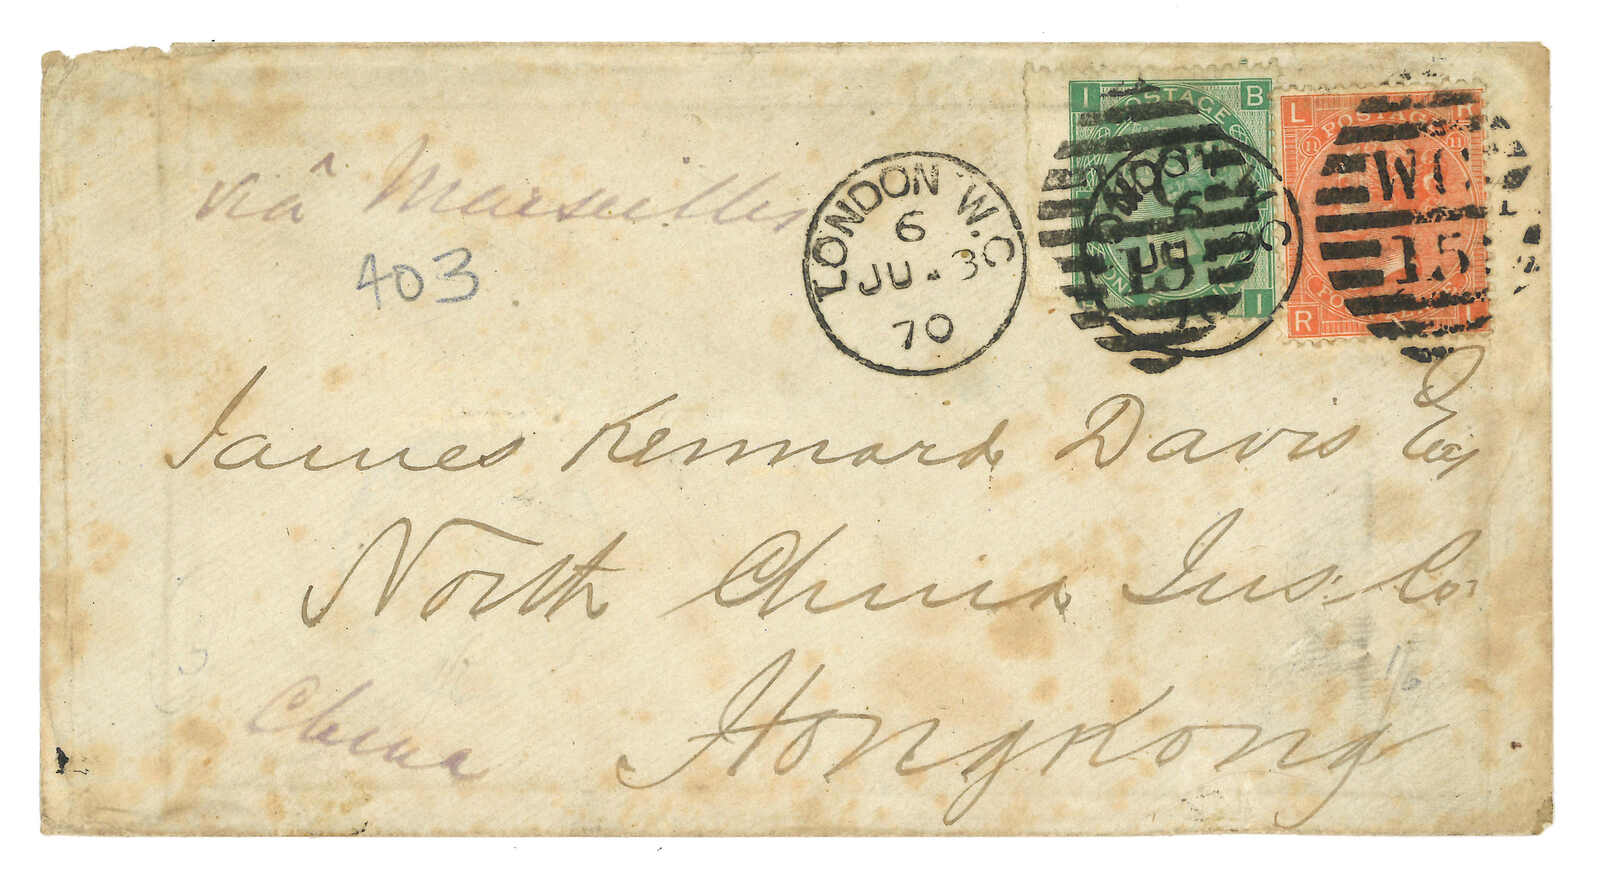 viâ Marseilles
403
LONDON W.C
6
JU 3
70
I B
POSTAGE
I
L R
POSTAGE
11 11
R L
WC
15
James Kennard Davis Esq
North China Ins. Co.
Hongkong
China
1/6